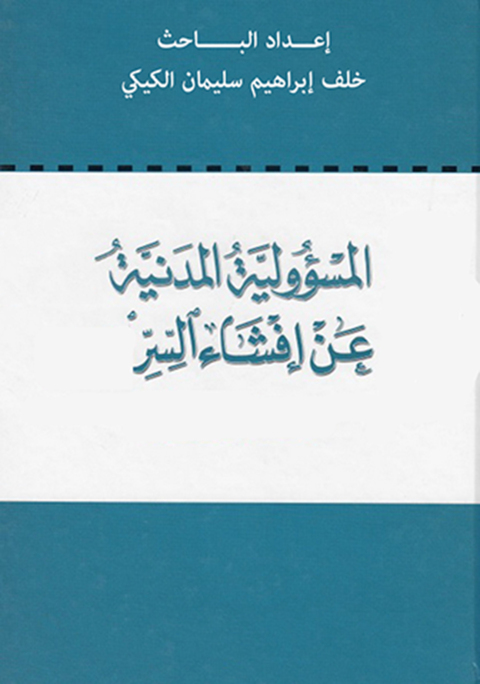 إعداد الباحث
خلف إبراهيم سليمان الكيكي
المسؤولية المدنية
عن إفشاء السر